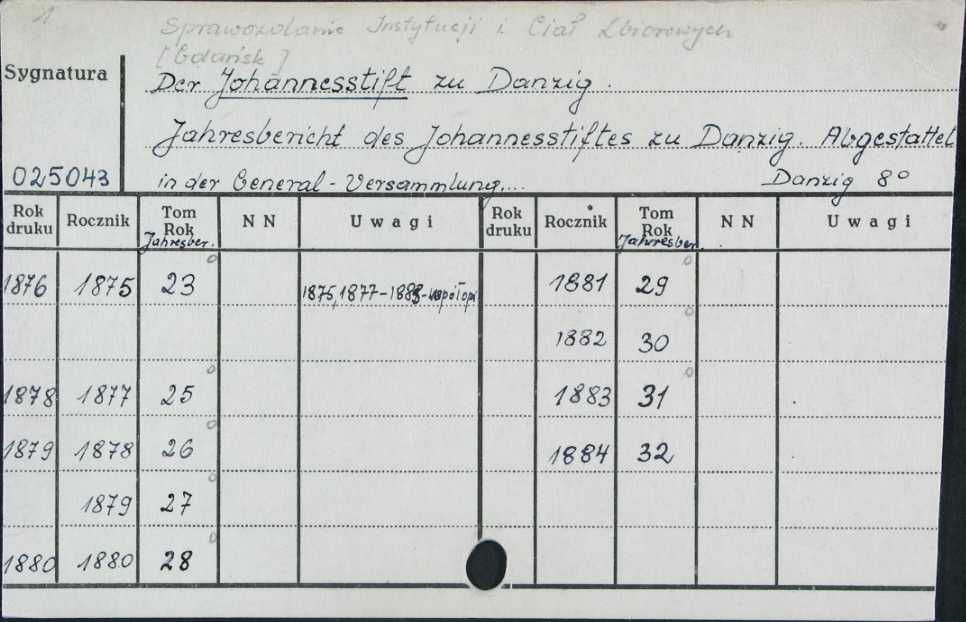 1
Sprawozdanie Instytucji i Ciał Zbiorowych
[Gdańsk]
Sygnatura
Der Johannesstift zu Danzig.
Jahresbericht des Johannesstiftes zu Danzig. Abgestattet
025043 in der General-Versammlung... Danzig 8°
Rok druku Rocznik Tom Rok Jahresber. N N Uwagi Rok druku Rocznik Tom Rok Jahresber. N N Uwagi
1876 1875 23 1875, 1877-1883-współopr 1881 29
1882 30
1878 1877 25 1883 31
1879 1878 26 1884 32
1879 27
1880 1880 28